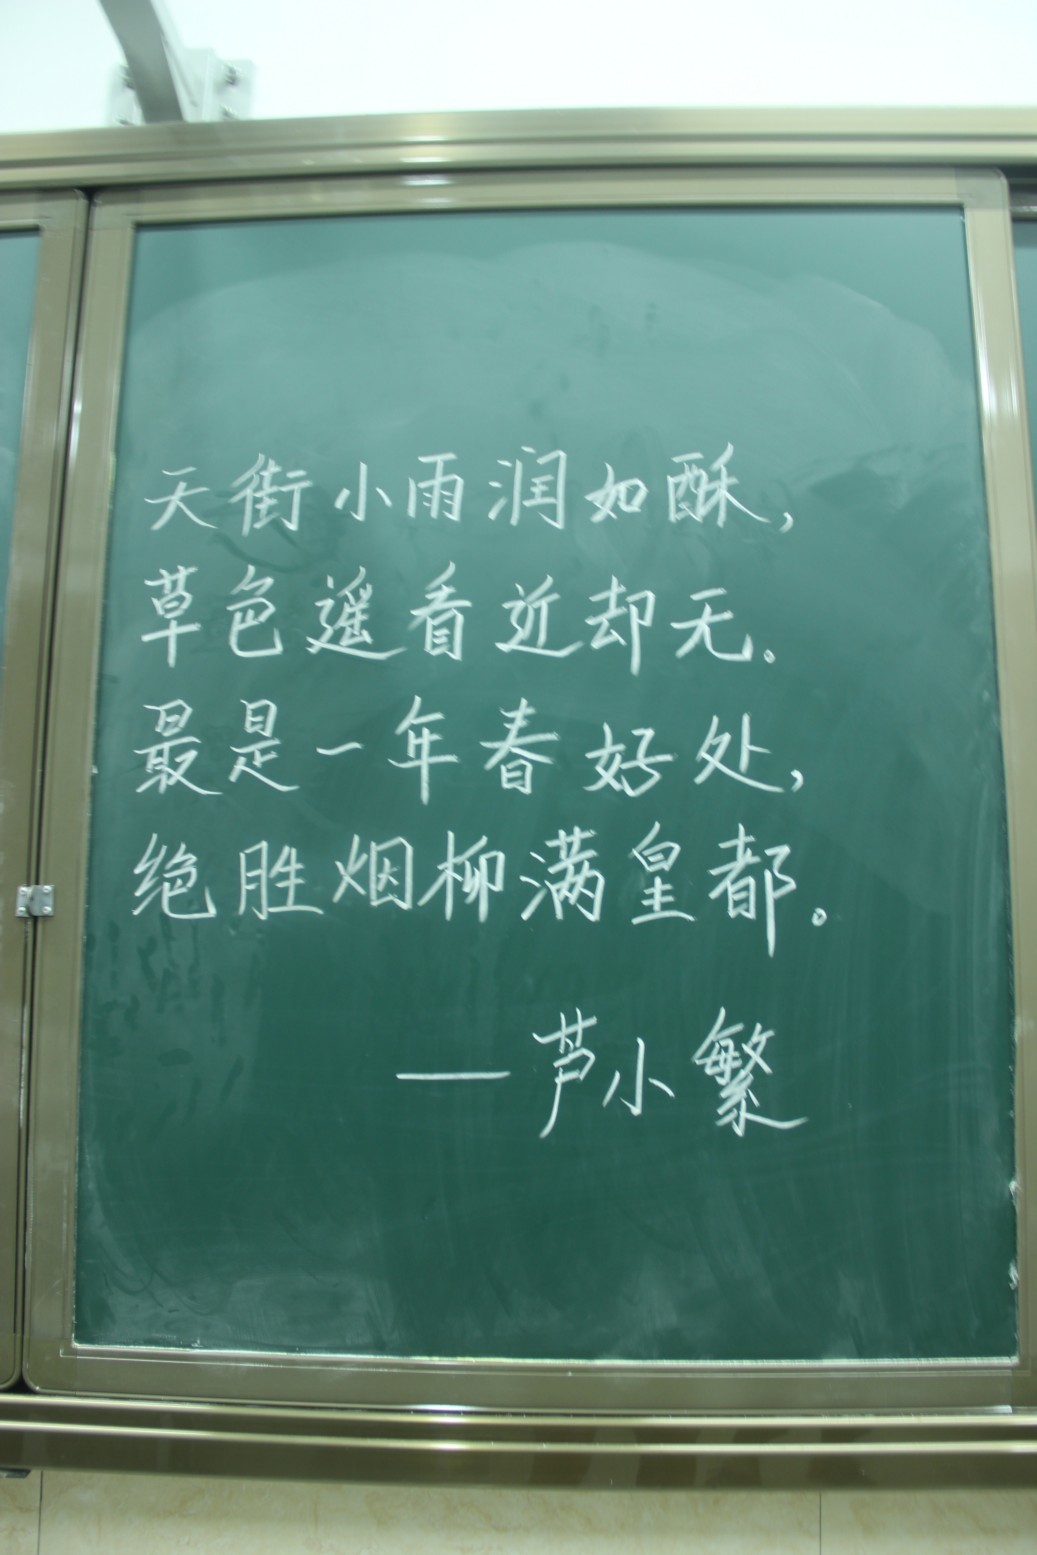 天街小雨润如酥，
草色遥看近却无.
最是一年春好处，
绝胜烟柳满皇都。
——芦小繁